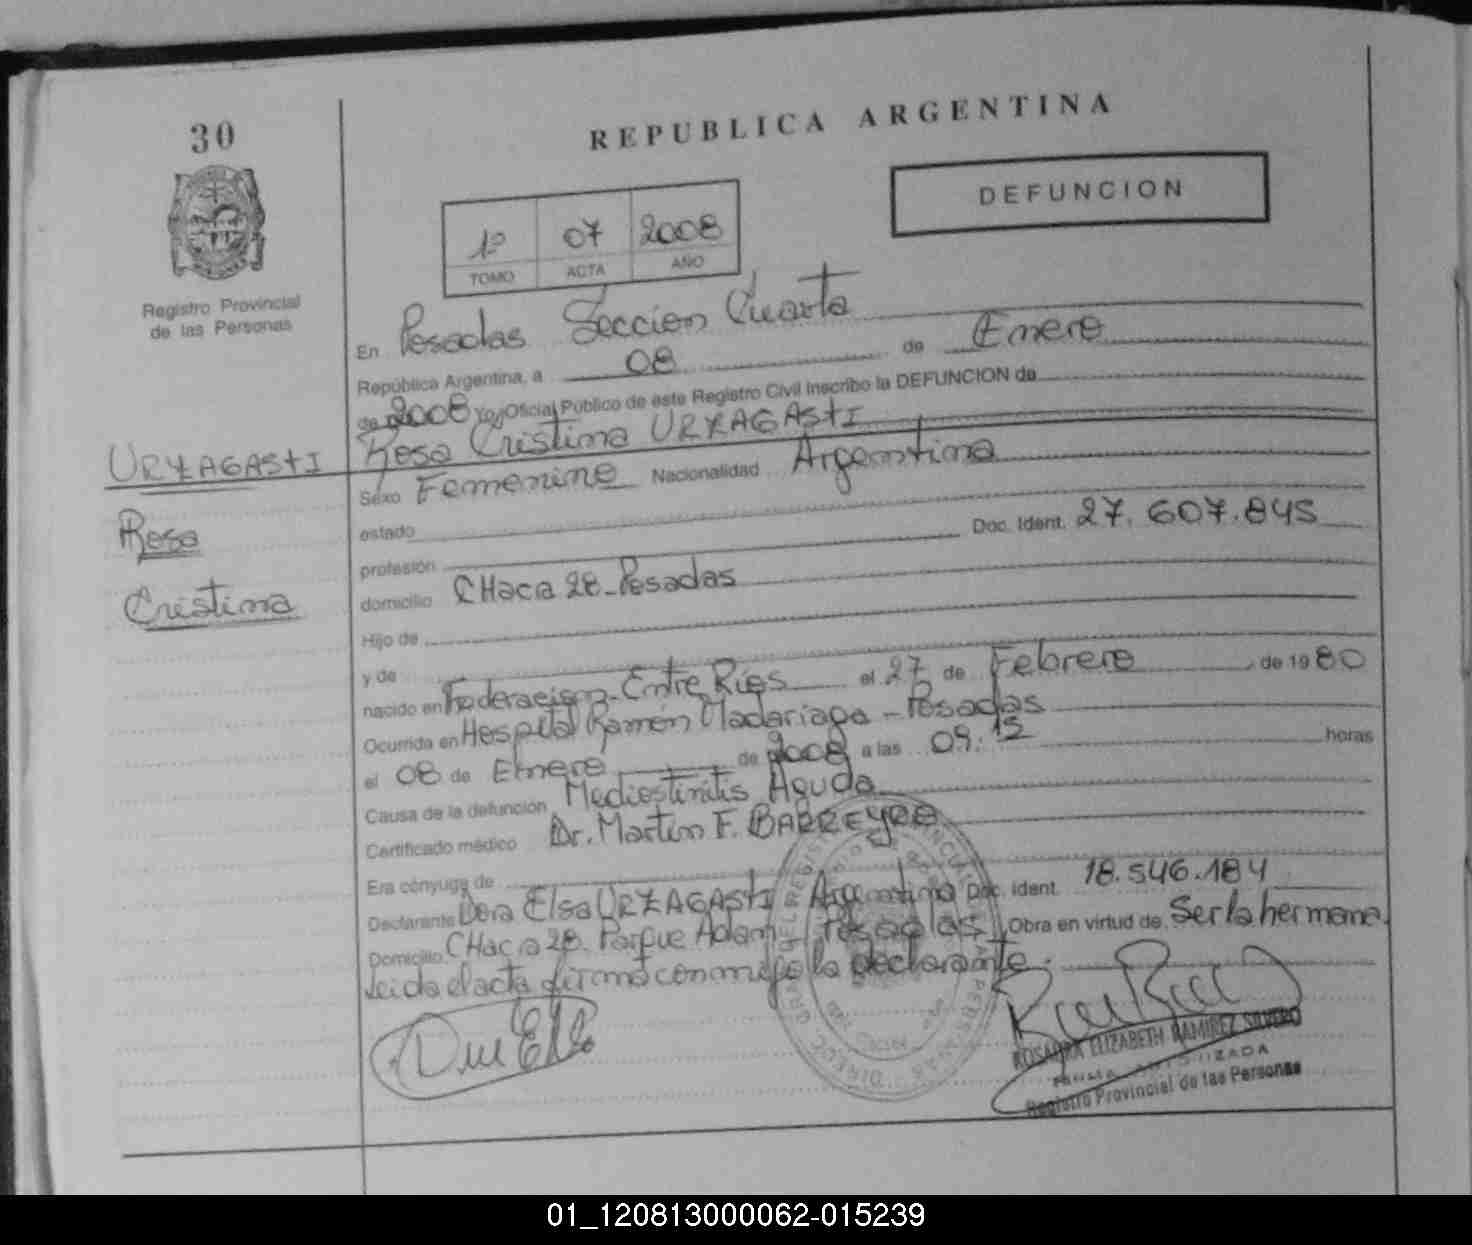 30
REPUBLICA ARGENTINA
DEFUNCION
1º 07 2008
TOMO ACTA AÑO
Registro Provincial
de las Personas
En Posadas Seccion Cuarta
República Argentina, a 08 de Enero
de 2008 Yo, Oficial Público de este Registro Civil inscribo la DEFUNCION de
Rosa Cristina URZAGASTI
URZAGASTI
Rosa
Cristina
Sexo Femenino Nacionalidad Argentina
estado
profesión Doc. Ident. 27.607.845
domicilio CHaca 28 - Posadas
Hijo de
y de
nacido en Federacion - Entre Rios el 27 de Febrero de 1980
Ocurrida en Hospital Ramón Madariaga - Posadas
el 08 de Enero de 2008 a las 09:15 horas
Causa de la defunción Mediostinitis Aguda
Certificado médico Dr. Martin F. BARREYRO
Era cónyuge de
Declarante Dora Elsa URZAGASTI Argentina Doc. Ident. 18.546.184
Domicilio CHacra 28. Parque Adam - Posadas Obra en virtud de Ser la hermana.
Leida el acta firma conmigo la declarante.
ROSANNA ELIZABETH RAMIREZ
Registro Provincial de las Personas
01_120813000062-015239